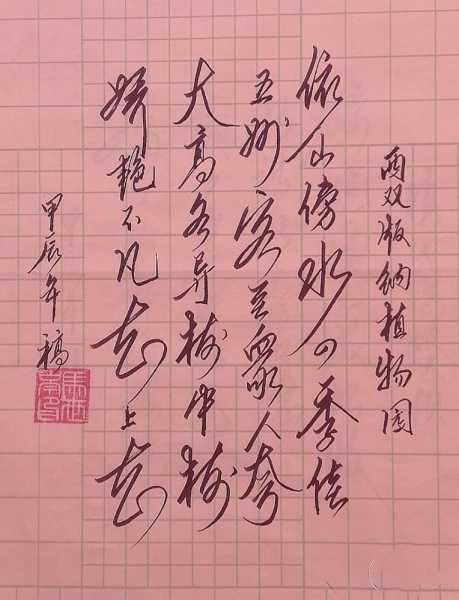 西双版纳植物园
依山傍水四季佳
五洲客至衆人夸
大高各异树中树
娇艳不凡花上花
甲辰年稿